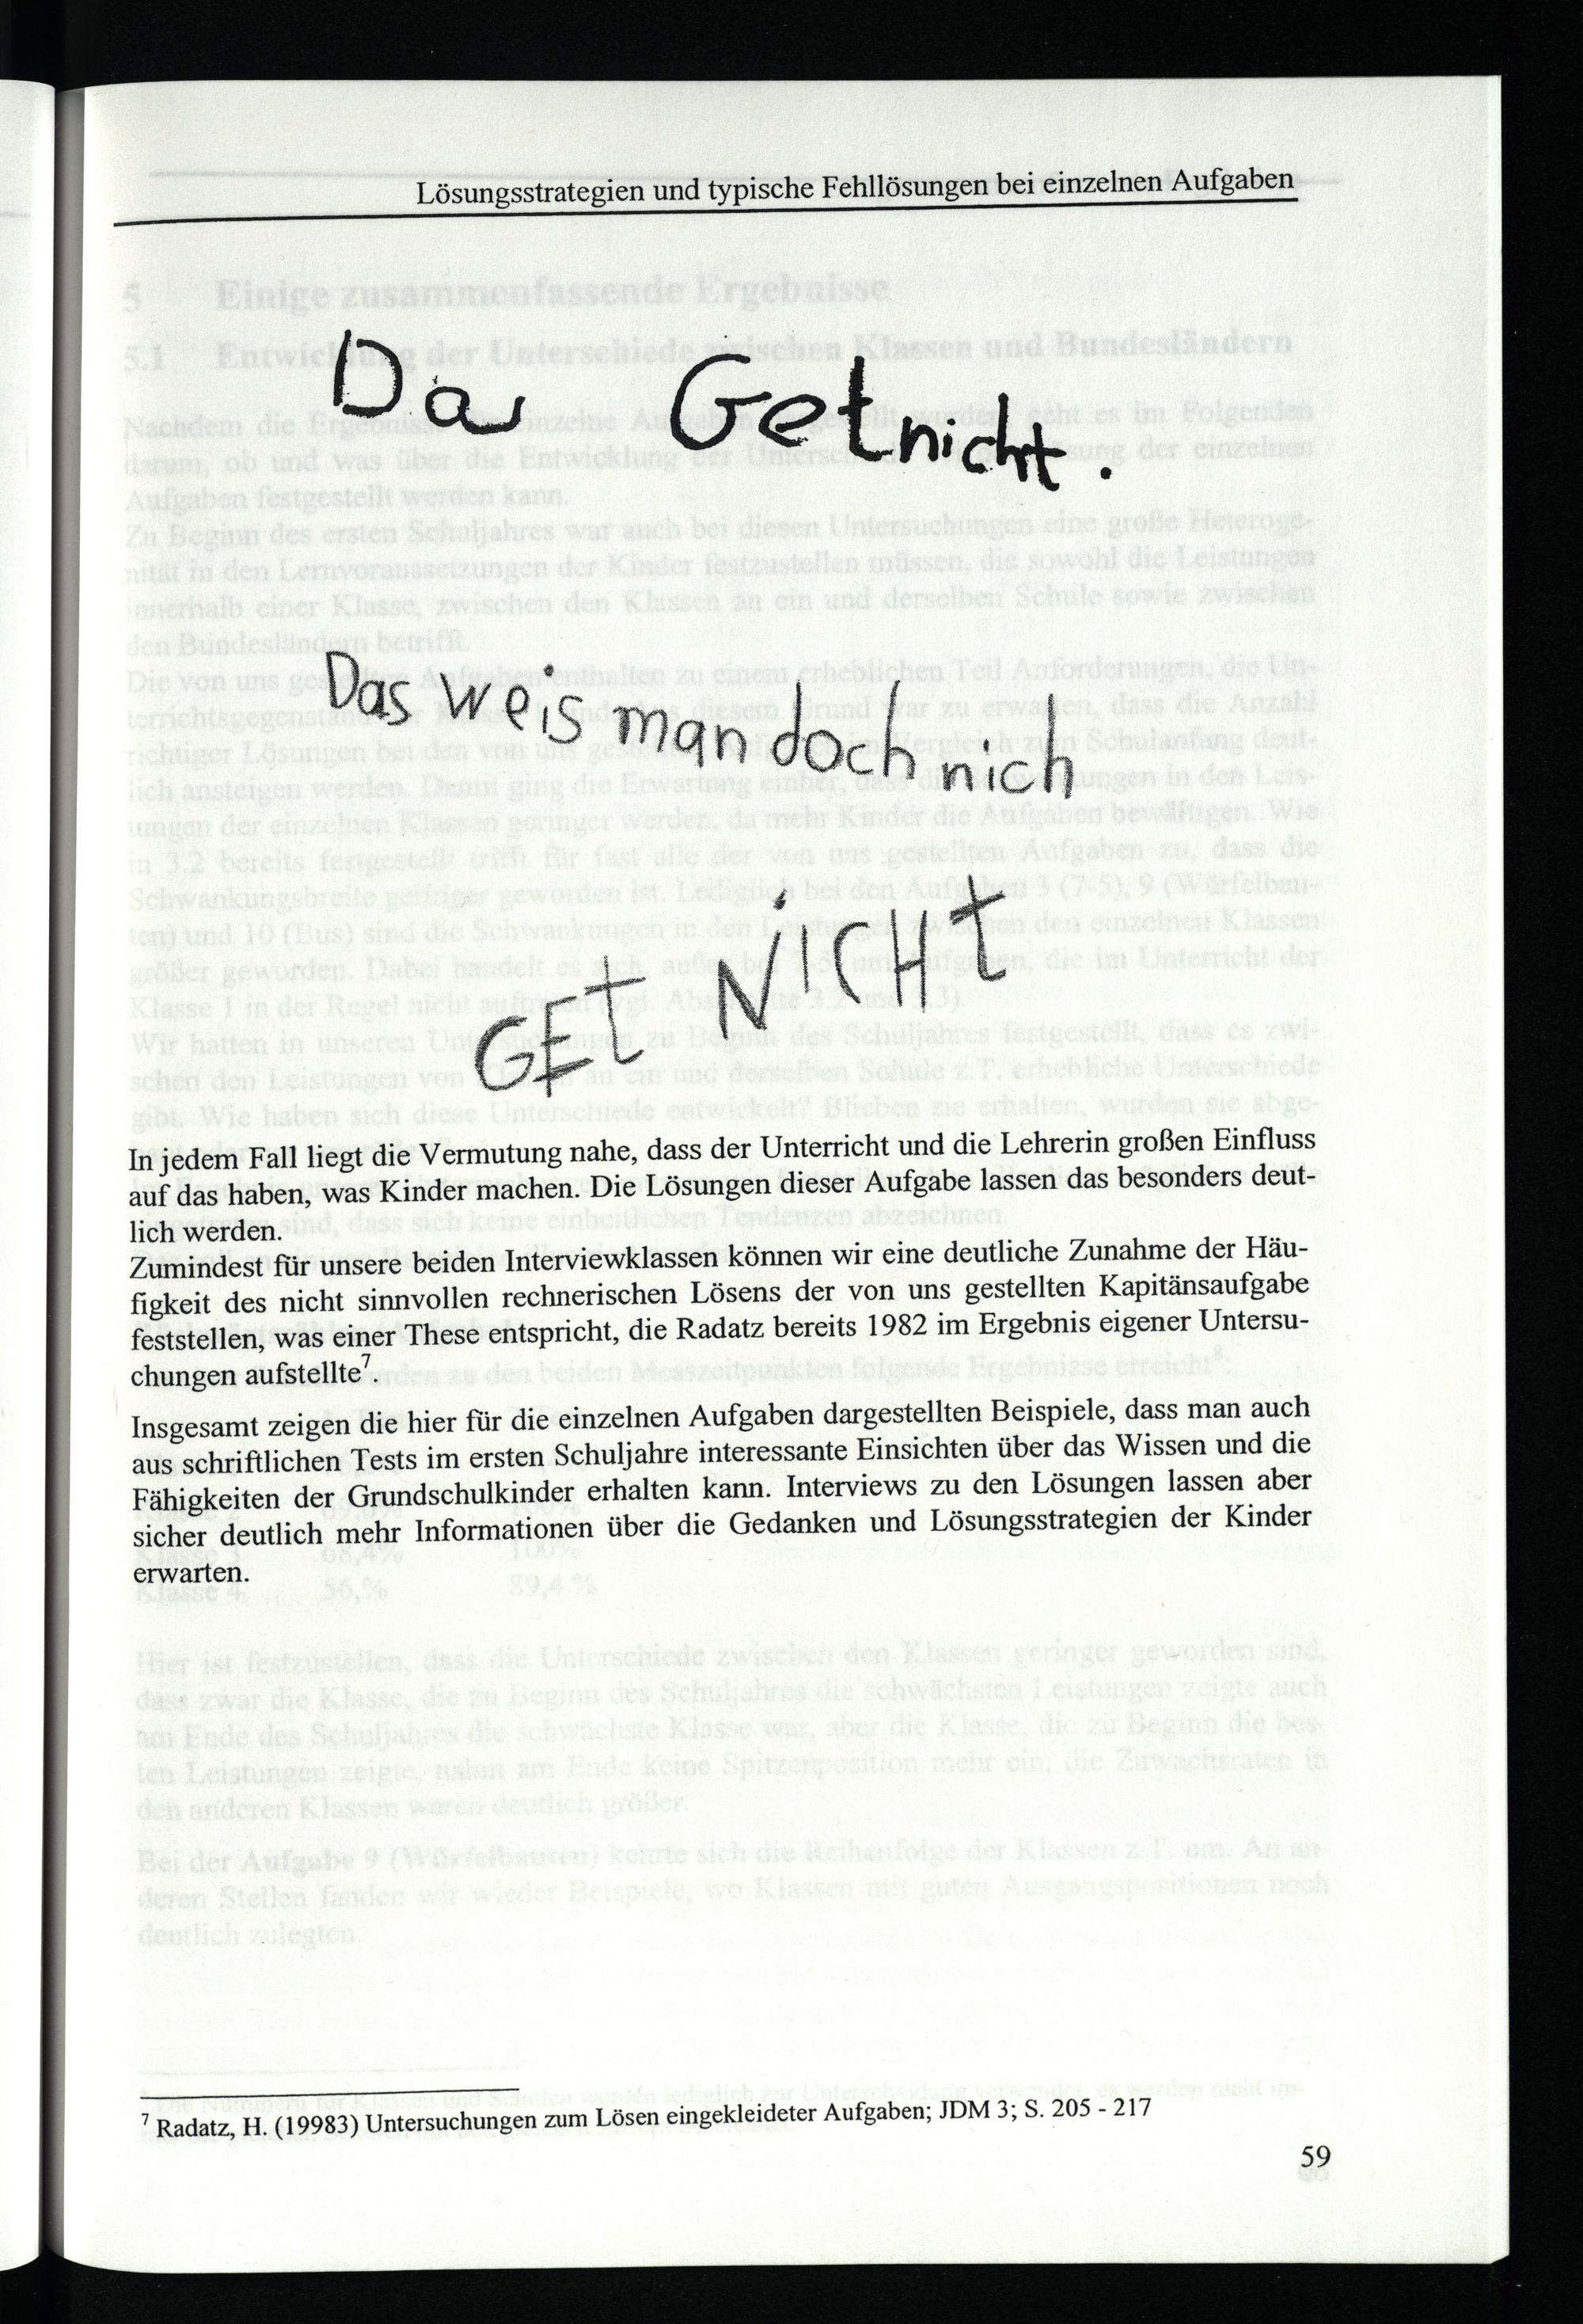 Lösungsstrategien und typische Fehllösungen bei einzelnen Aufgaben
Das Getnicht.
Das weis man doch nich
GET NICHt
In jedem Fall liegt die Vermutung nahe, dass der Unterricht und die Lehrerin großen Einfluss
auf das haben, was Kinder machen. Die Lösungen dieser Aufgabe lassen das besonders deut-
lich werden.
Zumindest für unsere beiden Interviewklassen können wir eine deutliche Zunahme der Häu-
figkeit des nicht sinnvollen rechnerischen Lösens der von uns gestellten Kapitänsaufgabe
feststellen, was einer These entspricht, die Radatz bereits 1982 im Ergebnis eigener Untersu-
chungen aufstellte⁷.
Insgesamt zeigen die hier für die einzelnen Aufgaben dargestellten Beispiele, dass man auch
aus schriftlichen Tests im ersten Schuljahre interessante Einsichten über das Wissen und die
Fähigkeiten der Grundschulkinder erhalten kann. Interviews zu den Lösungen lassen aber
sicher deutlich mehr Informationen über die Gedanken und Lösungsstrategien der Kinder
erwarten.
⁷ Radatz, H. (19983) Untersuchungen zum Lösen eingekleideter Aufgaben; JDM 3; S. 205 - 217
59